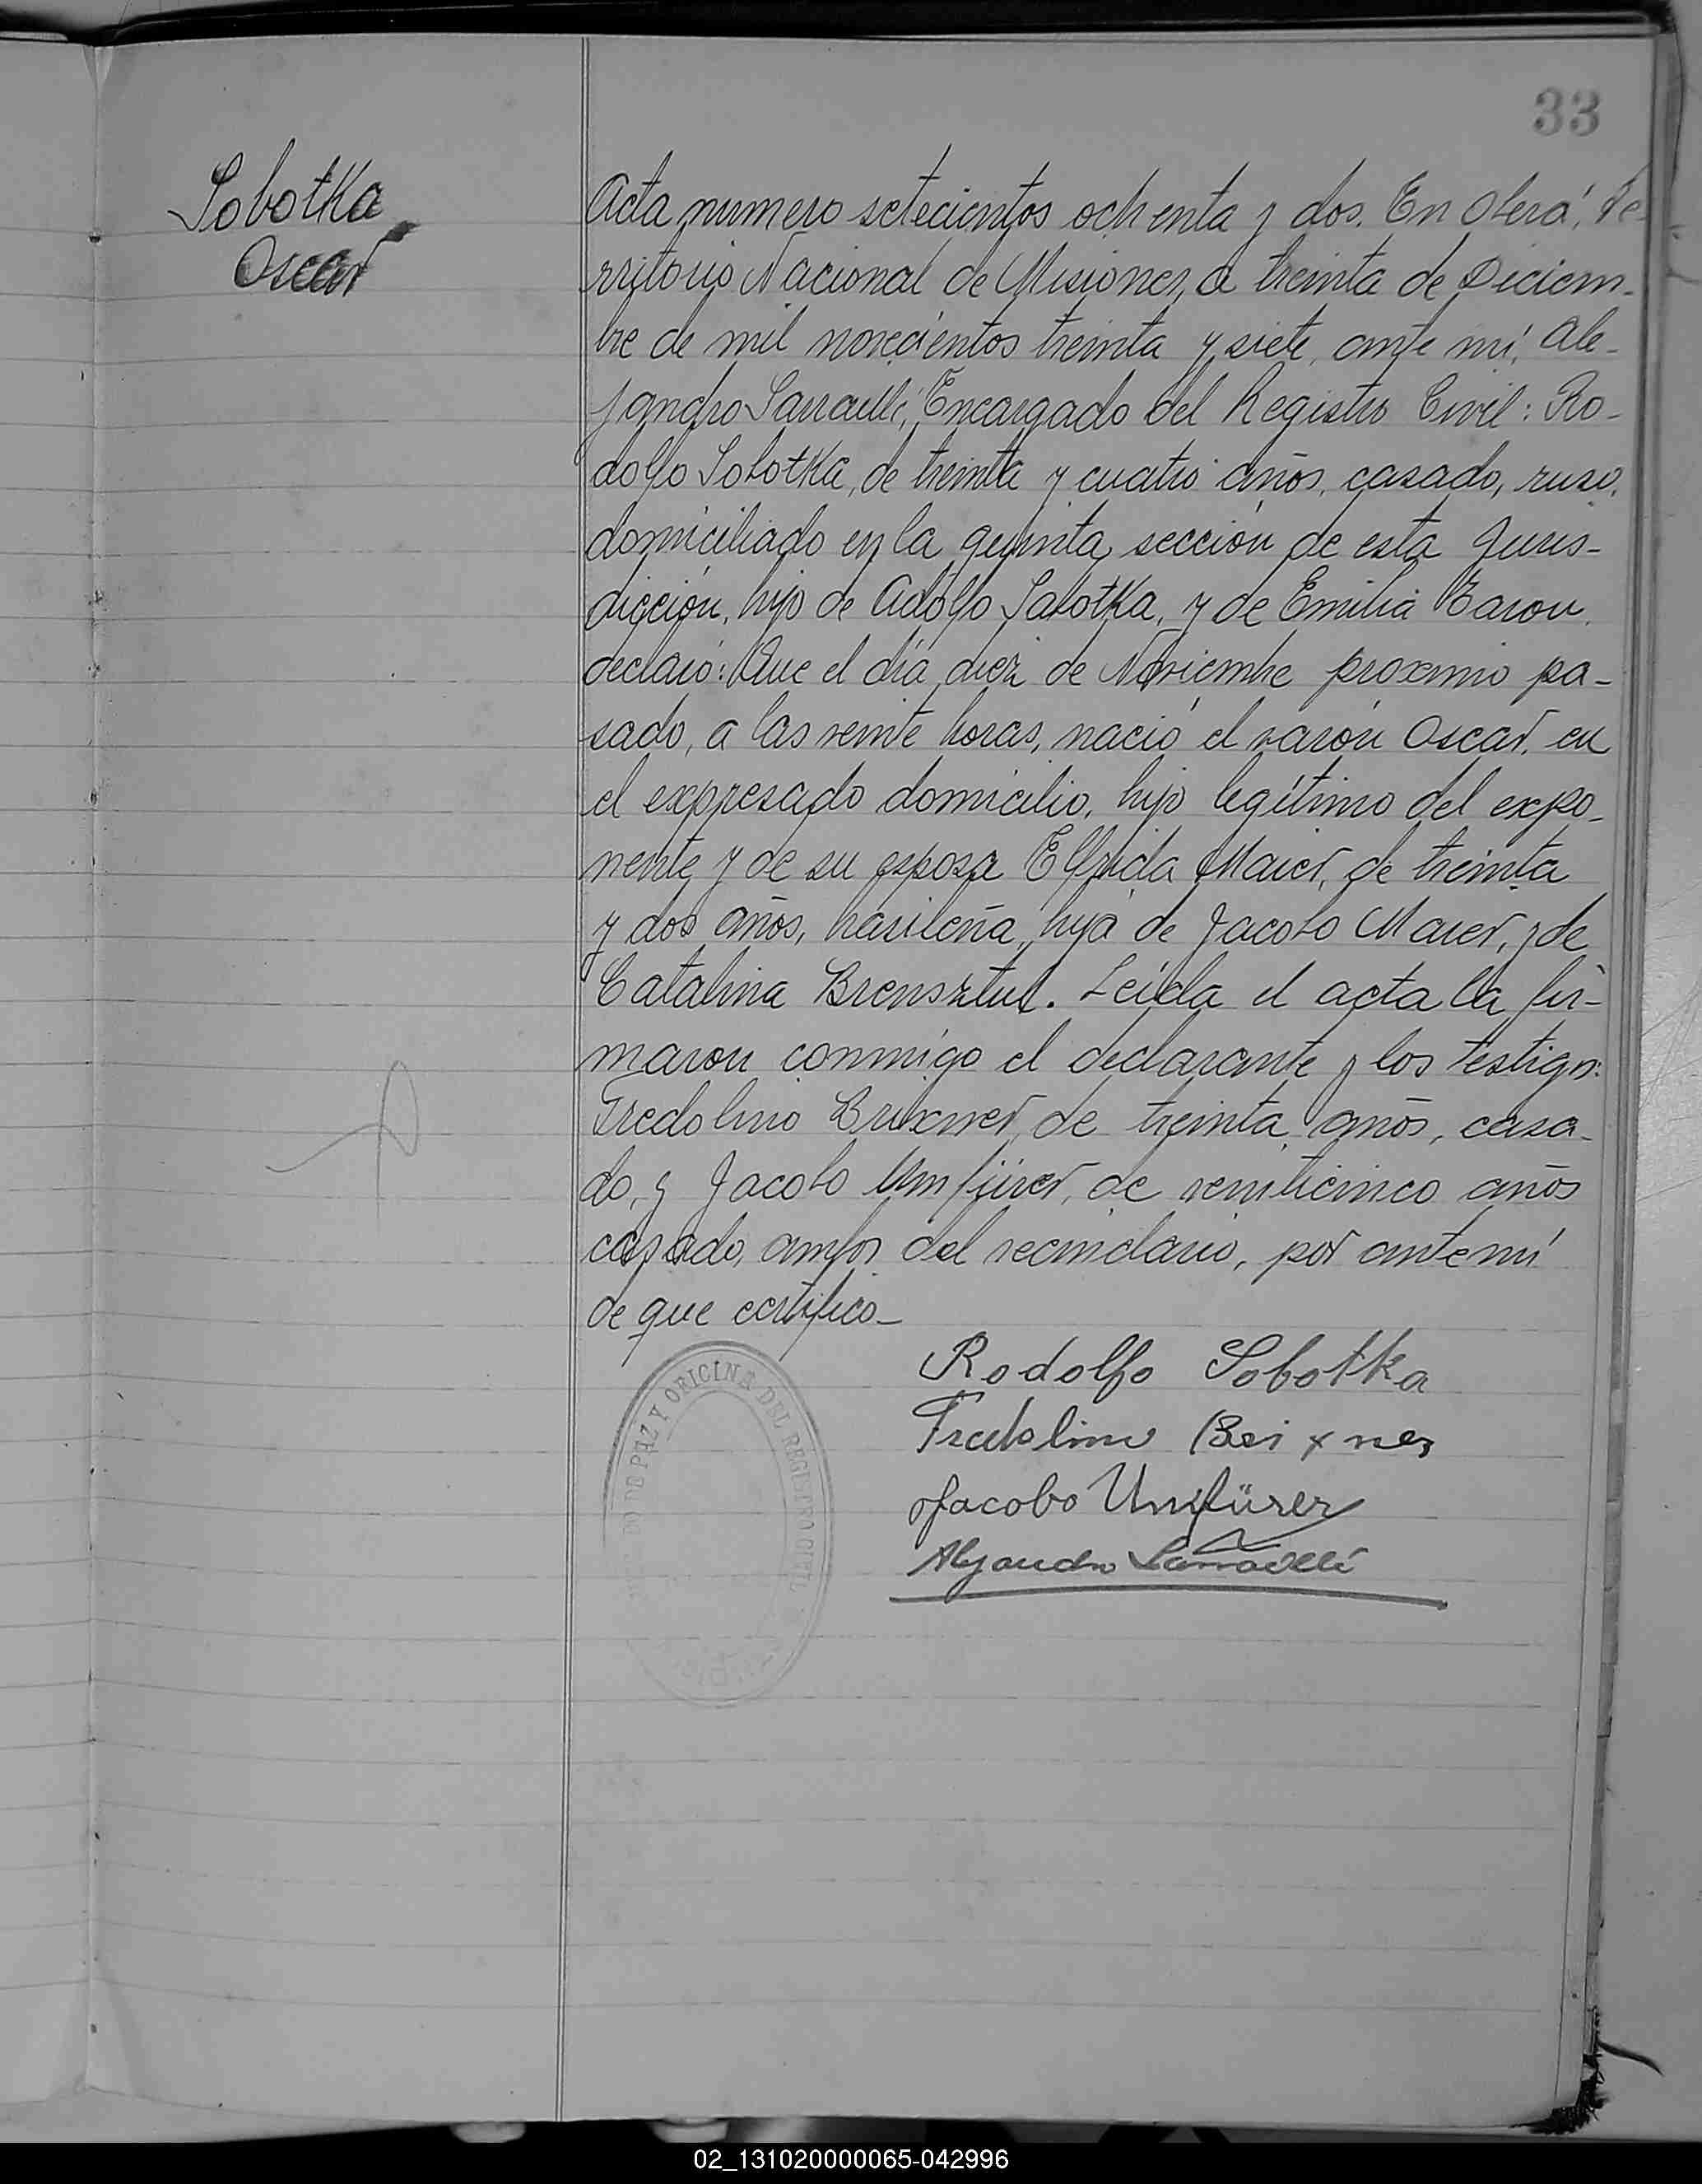 33
Sobotka
Oscar
Acta numero setecientos ochenta y dos. En Oberá, Te-
rritorio Nacional de Misiones, a treinta de Diciem-
bre de mil novecientos treinta y siete, ante mí, Ale-
jandro Sarravlli, Encargado del Registro Civil: Ro-
dolfo Sobotka, de treinta y cuatro años, casado, ruso,
domiciliado en la quinta sección de esta juris-
dicción, hijo de Adolfo Sabotka, y de Emilia Baron,
declaró: Que el día diez de Noviembre proximo pa-
sado, a las veinte horas, nació el varón Oscar, en
el expresado domicilio, hijo legítimo del expo-
nente y de su esposa Elfrida Maier, de treinta
y dos años, brasileña, hija de Jacobo Maier, y de
Catalina . Leída el acta la fir-
maron conmigo el declarante y los testigos:
Fredolino Brixner, de treinta años, casa-
do, y Jacobo Umfürer, de veinticinco años
casado, ambos del vecindario, por ante mí
de que certifico_
Rodolfo Sobotka
Fredolino Brixner
Jacobo Umfürer
Alejandro
DO DE PAZ Y OFICINA DEL REGISTRO CIVIL
02_131020000065-042996